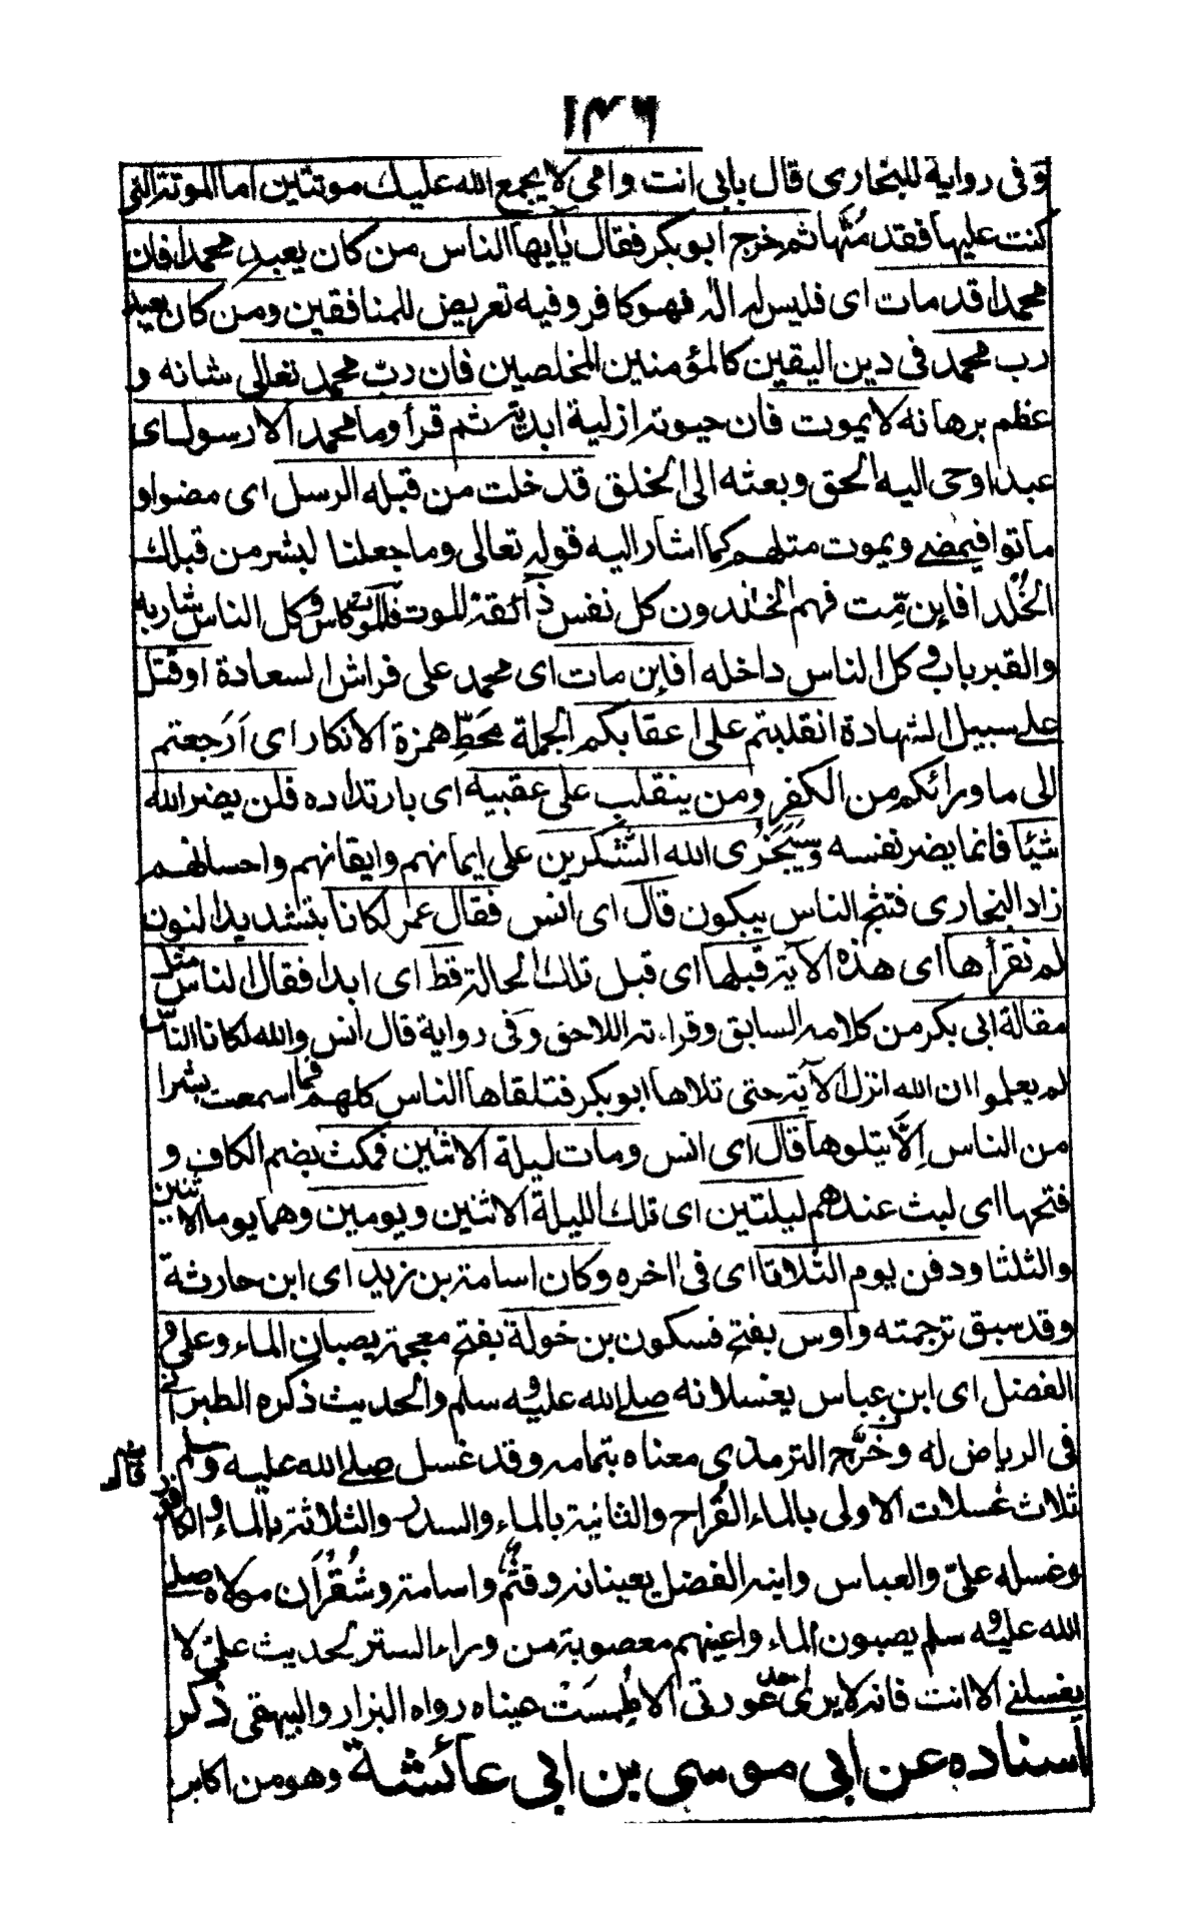 ١٤٦
وفى رواية للبخارى قال بابى انت وامى لا يجمع الله عليك موتتين اما الموتة التى
كنت عليها فقد متها ثم خرج ابو بكر فقال يا ايها الناس من كان يعبد محمدا فان
محمدا قد مات اى فليس له اله فهو كافر وفيه تعريض للمنافقين ومن كان يعبد
رب محمد فى دين اليقين كالمؤمنين المخلصين فان رب محمد تعالى شانه و
عظم برهانه لا يموت فان حيوته ازلية ابدية ثم قرأ وما محمد الا رسول اى
عبد اوحى اليه الحق وبعثه الى الخلق قد خلت من قبله الرسل اى مضوا و
ماتوا فيمضے ويموت مثلهم كما اشار اليه قوله تعالى وما جعلنا لبشر من قبلك
الخُلد افاىن مّت فهم الخٰلدون كل نفس ذآئقة الموت فالموت كاس وكل الناس شاربه
والقبر باب وكل الناس داخله افاىن مات اى محمد على فراش السعادة او قتل
علے سبيل الشهادة انقلبتم على اعقابكم الجملة محَطّ همزة الانكار اى اَرَجعتم
الى ما ورائكم من الكفر ومن ينقلب على عقبيه اى بارتداده فلن يضر الله
شيئا فانما يضر نفسه وسَيَجْزى الله الشّٰكرين على ايمانهم وايقانهم واحسانهم
زاد البخارى فنشج الناس يبكون قال اى انس فقال عمر لكانا بتشديد النون
لم نقرأها اى هذه الآية قبلها اى قبل تلك الحالة قط اى ابدا فقال الناس مثل
مقالة ابى بكر من كلامه السابق وقراءته اللاحق وفى رواية قال انس والله لكانا الناس
لم يعلموا ان الله انزل الآية حتى تلاها ابو بكر فتلقاها الناس كلهم فما اسمعت بشرا
من الناس اِلّا يتلوها قال اى انس ومات ليلة الاثنين فمكث بضم الكاف و
فتحها اى لبث عندهم ليلتين اى تلك الليلة الاثنين ويومين وهما يوما الاثنين
والثلثا ودفن يوم الثلاثا اى فى اخره وكان اسامة بن زيد اى ابن حارثة
وقد سبق ترجمته واوس بفتح فسكون بن خولة بفتح معجمة يصبان الماء وعلى و
الفضل اى ابن عباس يغسلانه صلے الله عليه وسلم والحديث ذكره الطبرانے
فى الرياض له وخرّج الترمذى معناه بتمامه وقد غسل صلے الله عليه وسلم
ثلاث غسلات الاولى بالماء القُراح والثانية بالماء والسدر والثلاثة بالماء والكافور
وغسله علىّ والعباس وابنه الفضل يعينانه وقُثَم واسامة وشُقْرَان مولاه صلے
الله عليه وسلم يصبون الماء واعينهم معصوبة من وراء الستر لحديث علىّ لا
يغسلنے الا انت فانه لا يرى احد عورتى الا طُمسَتْ عيناه رواه البزار والبيهقى ذكر
اسناده عن ابى موسى بن ابى عائشة وهو من اكابر